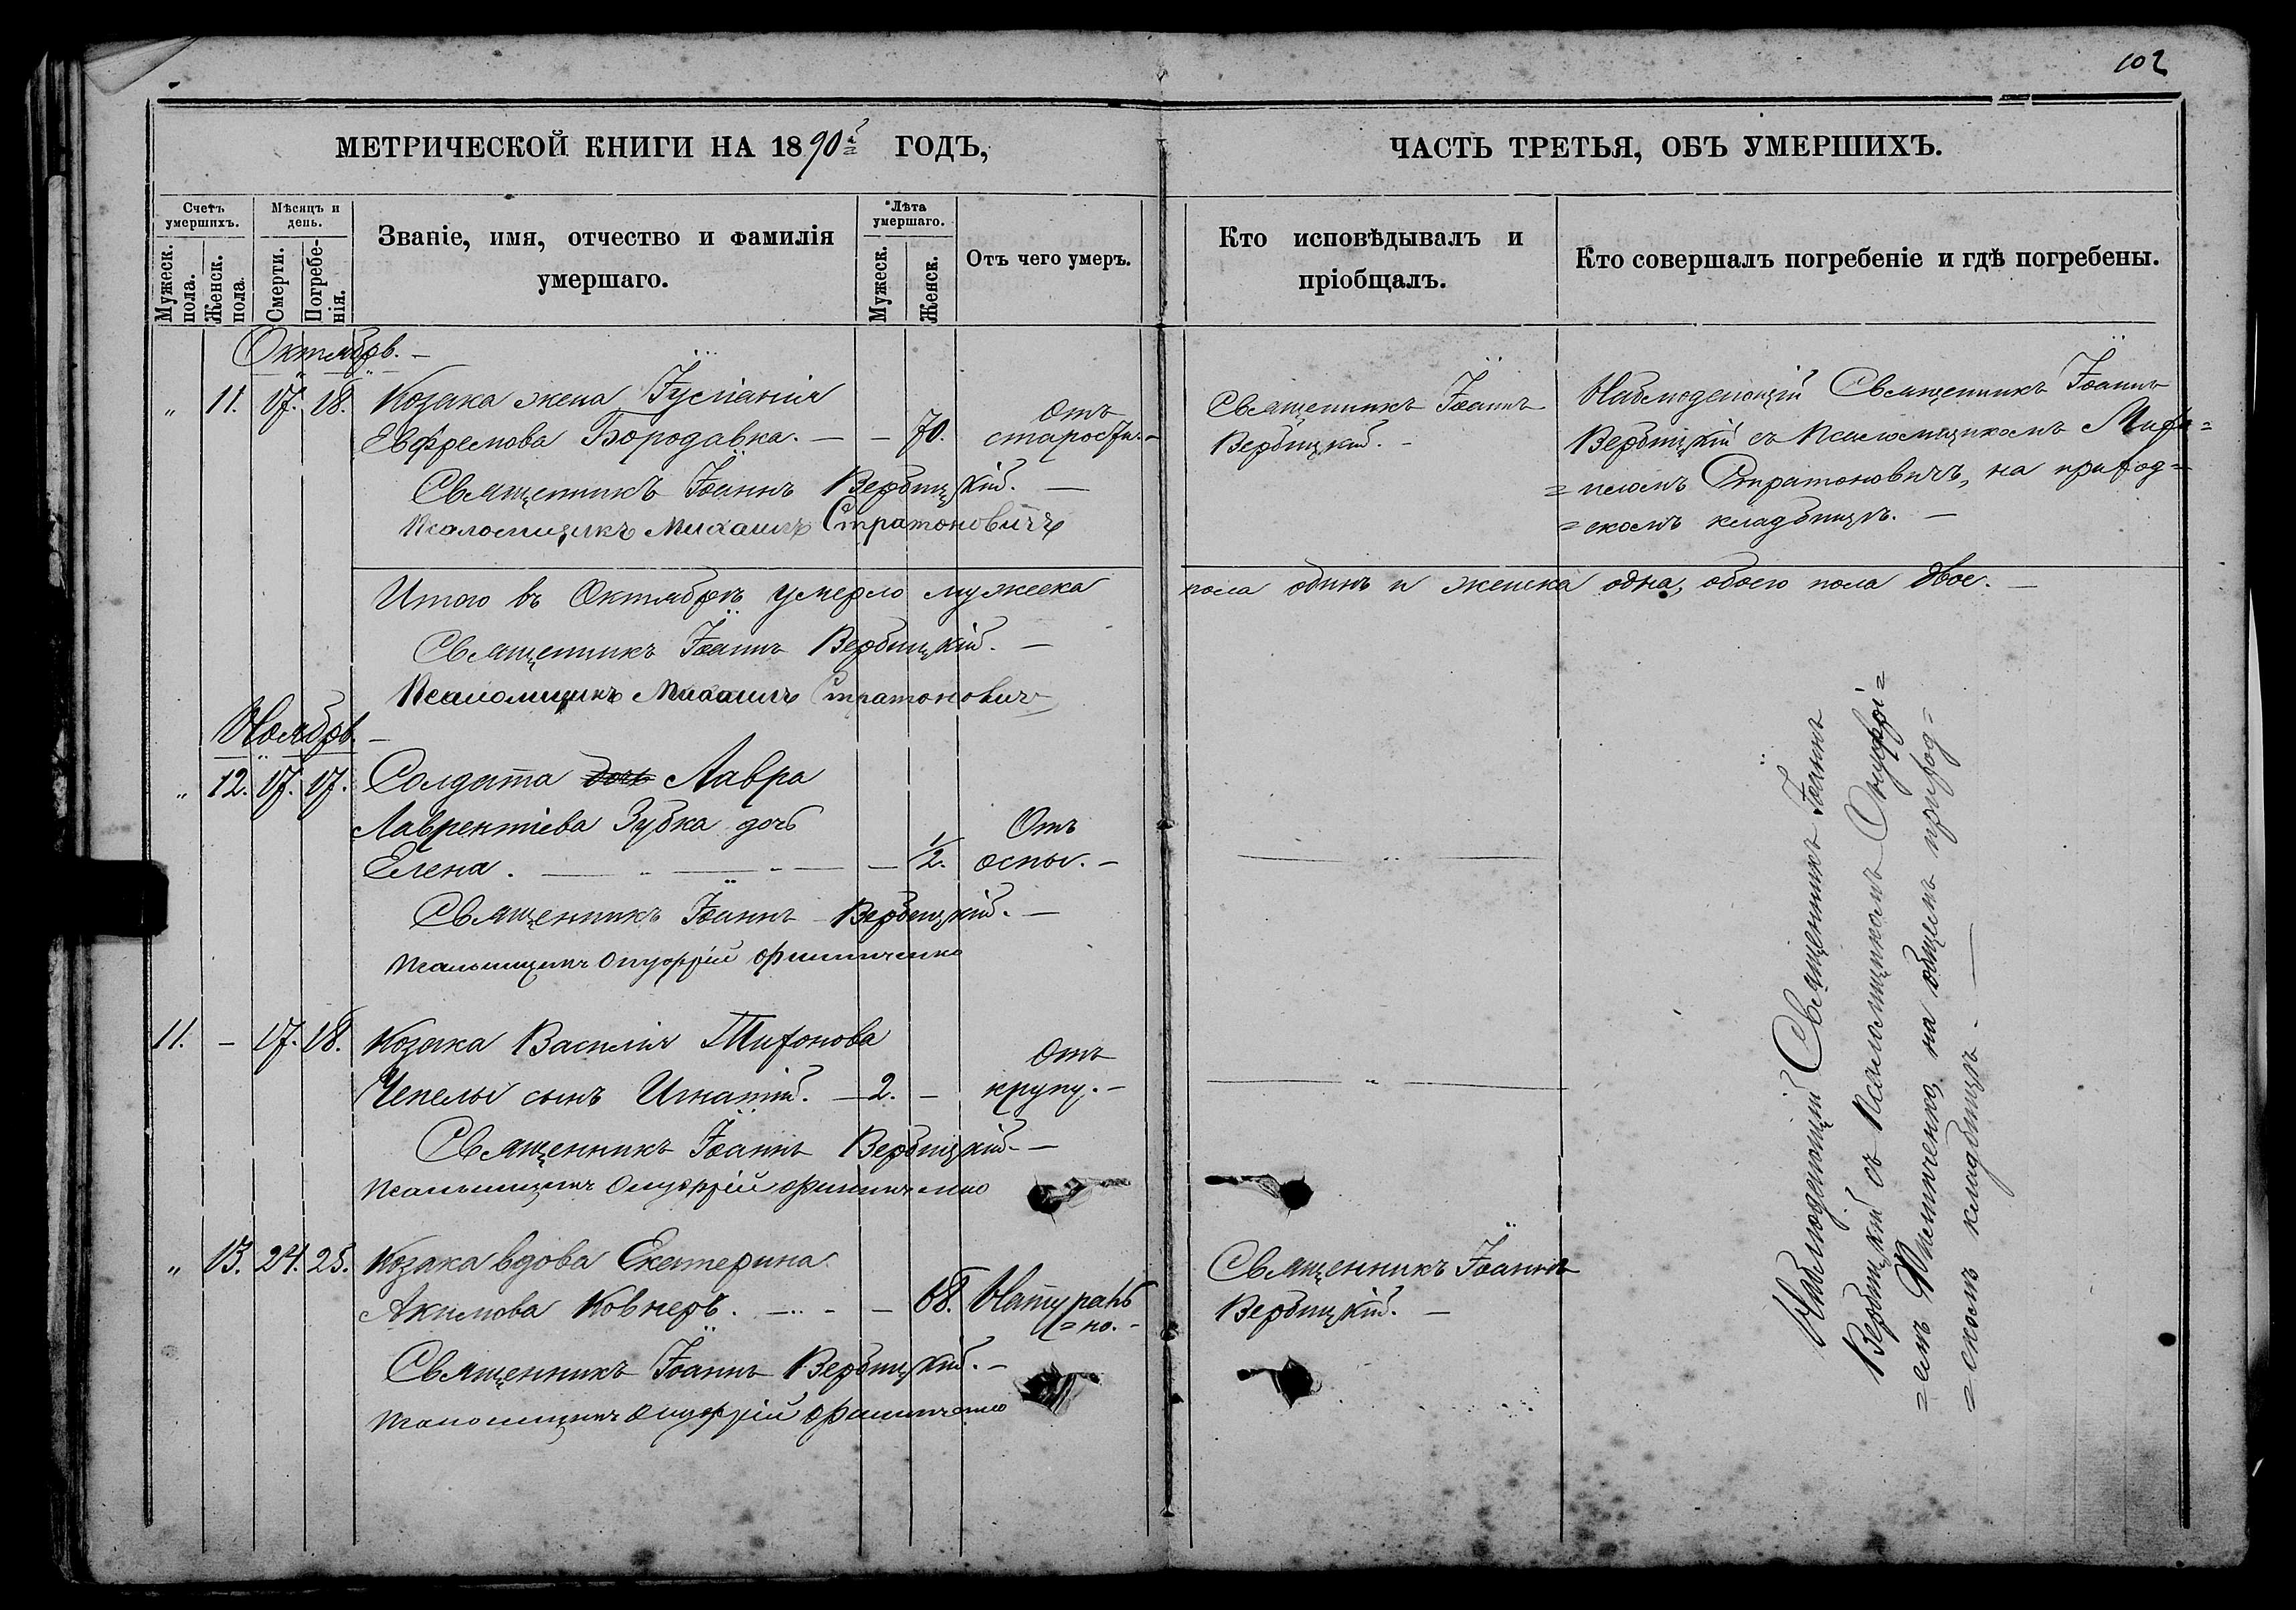 102
МЕТРИЧЕСКОЙ КНИГИ НА 1890й ГОДЪ,
ЧАСТЬ ТРЕТЬЯ, ОБЪ УМЕРШИХЪ.
Счетъ умершихъ.
Мужеск. пола.
Женск. пола.
Мѣсяцъ и день.
Смерти.
Погребенія.
Званіе, имя, отчество и фамилія
умершаго.
Лѣта умершаго.
Мужеск.
Женск.
Отъ чего умеръ.
Кто исповѣдывалъ и
пріобщалъ.
Кто совершалъ погребеніе и гдѣ погребены.
Октябрь. —
„ 11. 17. 18. Козака жена Іуліанія
Евфремова Бородавка. — — 70. Отъ старости. —
Священникъ Іоаннъ
Вербицкій. —
Наблюдающій Священникъ Іоаннъ
Вербицкій съ Псаломщикомъ Миха=
=иломъ Стратоновичъ, на приход=
=скомъ кладбищѣ. —
Священникъ Іоаннъ Вербицкій. —
Псаломщикъ Михаилъ Стратоновичъ
Итого въ Октябрѣ умерло мужеска пола одинъ и женска одна, обоего пола двое. —
Священникъ Іоаннъ Вербицкій. —
Псаломщикъ Михаилъ Стратоновичъ
Ноябрь. —
„ 12. 17. 17. Солдата дочь Лавра
Лаврентіева Зубка дочь
Елена. — — 1/2. Отъ оспы. —
Священникъ Іоаннъ Вербицкій. —
Псаломщикъ Онуфрій Филипченко
11. — 17. 18. Козака Василія Тихонова
Чепелы сынъ Игнатій. — 2. — Отъ крупу. —
Священникъ Іоаннъ Вербицкій. —
Псаломщикъ Онуфрій Филипченко
„ 13. 24. 25. Козака вдова Екатерина
Акимова Ковнеръ. — — 68. Натураль
=но. —
Священникъ Іоаннъ
Вербицкій. —
Священникъ Іоаннъ Вербицкій. —
Псаломщикъ Онуфрій Филипченко
Наблюдающій Священникъ Іоаннъ
Вербицкій съ Псаломщикомъ Онуфрі=
=емъ Филипченко, на общемъ приход=
=скомъ кладбищѣ. —